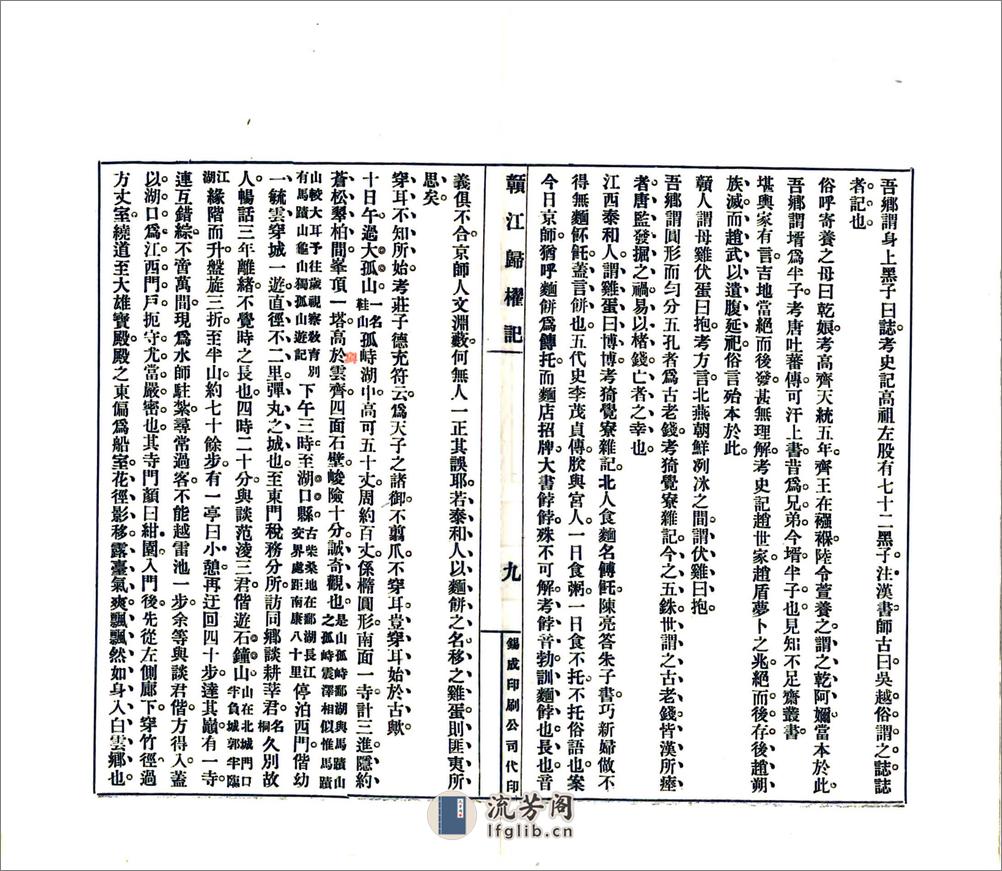 吾鄉謂身上黑子曰誌考史記高祖左股有七十二黑子注漢書師古曰吳越俗謂之誌誌
者記也
俗呼寄養之母曰乾娘考高齊天統五年齊王在襁褓陸令萱養之謂之乾阿嬭當本於此
吾鄉謂壻爲半子考唐吐蕃傳可汗上書昔爲兄弟今壻半子也見知不足齋叢書
堪輿家有言吉地當絕而後發甚無理解考史記趙世家趙盾夢卜之兆絕而後存後趙朔
族滅而趙武以遺腹延祀俗言殆本於此
贛人謂母雞伏蛋曰抱考方言北燕朝鮮洌水之間謂伏雞曰抱
吾鄉謂圓形而勻分五孔者爲古老錢考猗覺寮雜記今之五銖世謂之古老錢皆漢所瘞
者唐監發掘之禍易以楮錢亡者之幸也
江西泰和人謂雞蛋曰博博考猗覺寮雜記北人食麵名餺飥陳亮答朱子書巧新婦做不
得無麵飥蓋言餅也五代史李茂貞傳朕與宮人一日食粥一日食不托不托俗語也案
今日京師猶呼麵餅爲餺托而麵店招牌大書餑餑殊不可解考餑音勃訓麵餑也長也音
贛江歸櫂記
九
錫成印刷公司代印
義俱不合京師人文淵藪何無人一正其誤耶若泰和人以麵餅之名移之雞蛋則匪夷所
思矣
穿耳不知所始考莊子德充符云爲天子之諸御不翦爪不穿耳豈穿耳始於古歟
十日午過大孤山一名鞋山孤峙湖中高可五十丈周約百丈係橢圓形南面一寺計三進隱約
蒼松翠柏間峯頂一塔高於雲齊四面石壁峻險十分誠奇觀也是山孤峙鄱湖與馬蹟山之孤峙震澤相似惟馬蹟
山較大耳予往歲視察敎育別有馬蹟山龜山獨孤山遊記下午三時至湖口縣古柴桑地在鄱湖長江交界處距南康八十里停泊西門偕幼
一毓雲穿城一遊直徑不二里彈丸之城也至東門稅務分所訪同鄉談耕莘君名桐久別故
人暢話三年離緒不覺時之長也四時二十分與談范淩三君偕遊石鐘山山在北城門口半負城郭半臨
江湖緣階而升盤旋三折至半山約七十餘步有一亭曰小憩再迂回四十步達其巔有一寺
連互錯綜不啻萬間現爲水師駐紮尋常過客不能越雷池一步余等與談君偕方得入蓋
以湖口爲江西門戶扼守尤當嚴密也其寺門顏曰紺園入門後先從左側廊下穿竹徑過
方丈室繞道至大雄寶殿殿之東偏爲船室花徑影移露臺氣爽飄飄然如身入白雲鄉也
流芳阁
lfglib.cn